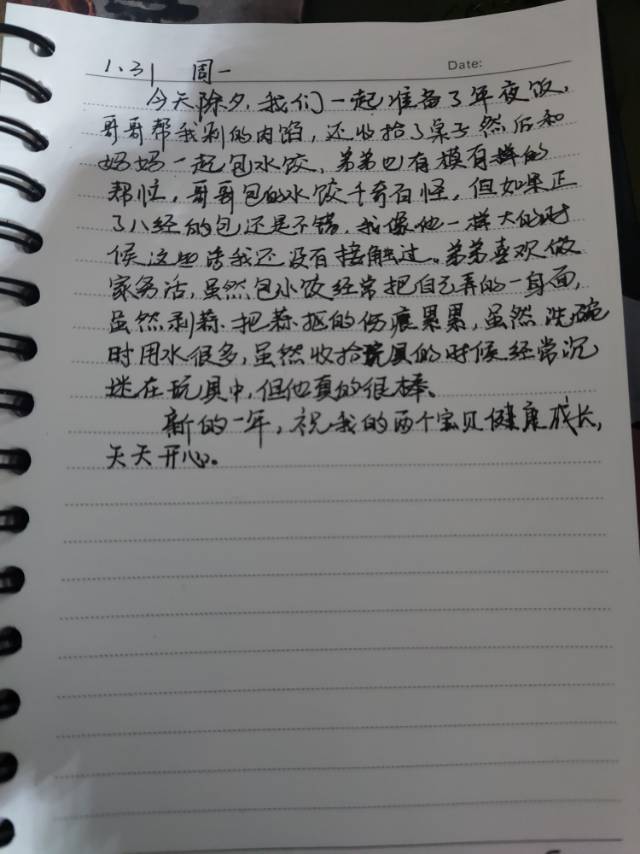 1.31 周一 Date:
今天除夕,我们一起准备了年夜饭,
哥哥帮我剁的肉馅,还收拾了桌子然后和
妈妈一起包水饺、弟弟也有模有样的
帮忙,哥哥包的水饺千奇百怪,但如果正
了八经的包还是不错,我像他一样大的时
候这些活我还没有接触过。弟弟喜欢做
家务活,虽然包水饺经常把自己弄的一身面,
虽然剥蒜把蒜抠的伤痕累累,虽然洗碗
时用水很多,虽然收拾玩具的时候经常沉
迷在玩具中,但他真的很棒、
新的一年,祝我的两个宝贝健康成长,
天天开心。